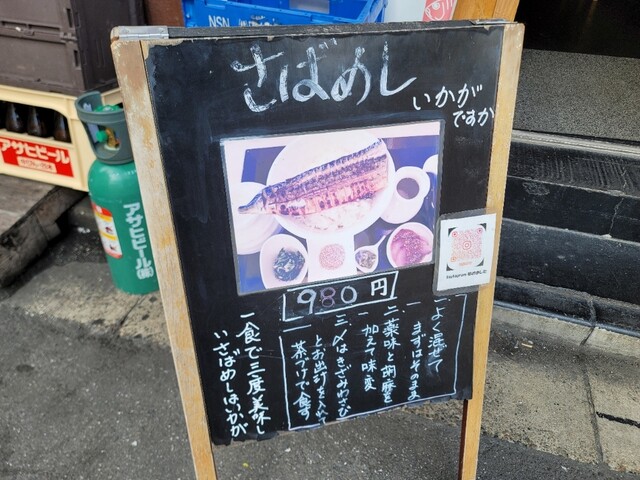 さばめし
いかが
ですか
980円
一よく混ぜて
まずはそのまま
二薬味と胡麻を
加えて味変
三、〆はきざみわさび
とお出汁を入れて
茶づけで食す
一食で三度美味し
いさばめしはいかが
NSN
アサヒビール
アサヒビール㈱